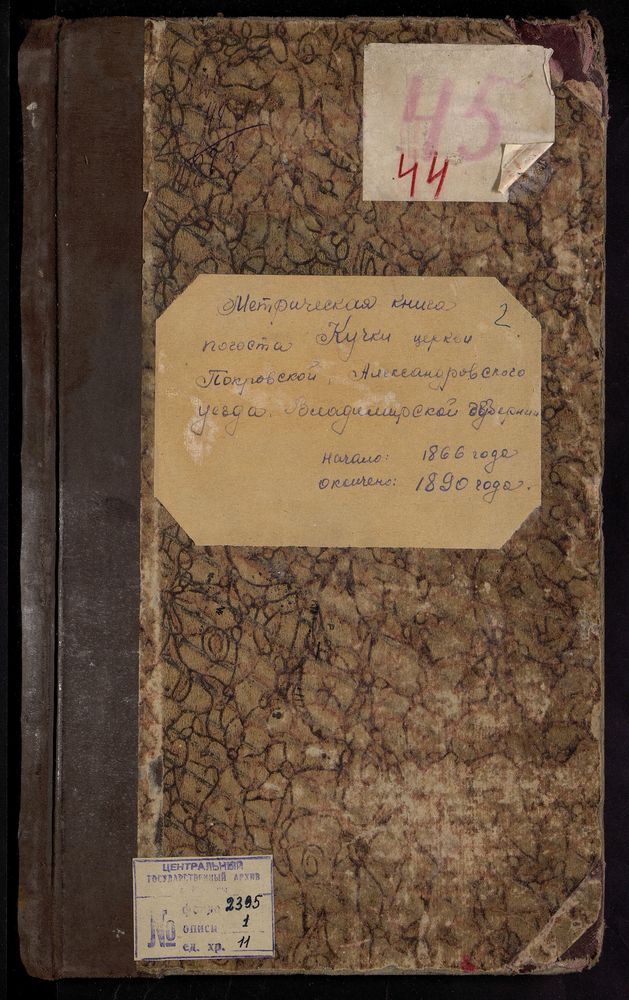 45
44
2
Метрическая книга
погоста Кучки церкви
Покровской, Александровского
уезда, Владимирской губернии
начало: 1866 года
окончено: 1890 года.
ЦЕНТРАЛЬНЫЙ
ГОСУДАРСТВЕННЫЙ АРХИВ
фонд 2395
№ описи 1
ед. хр. 11